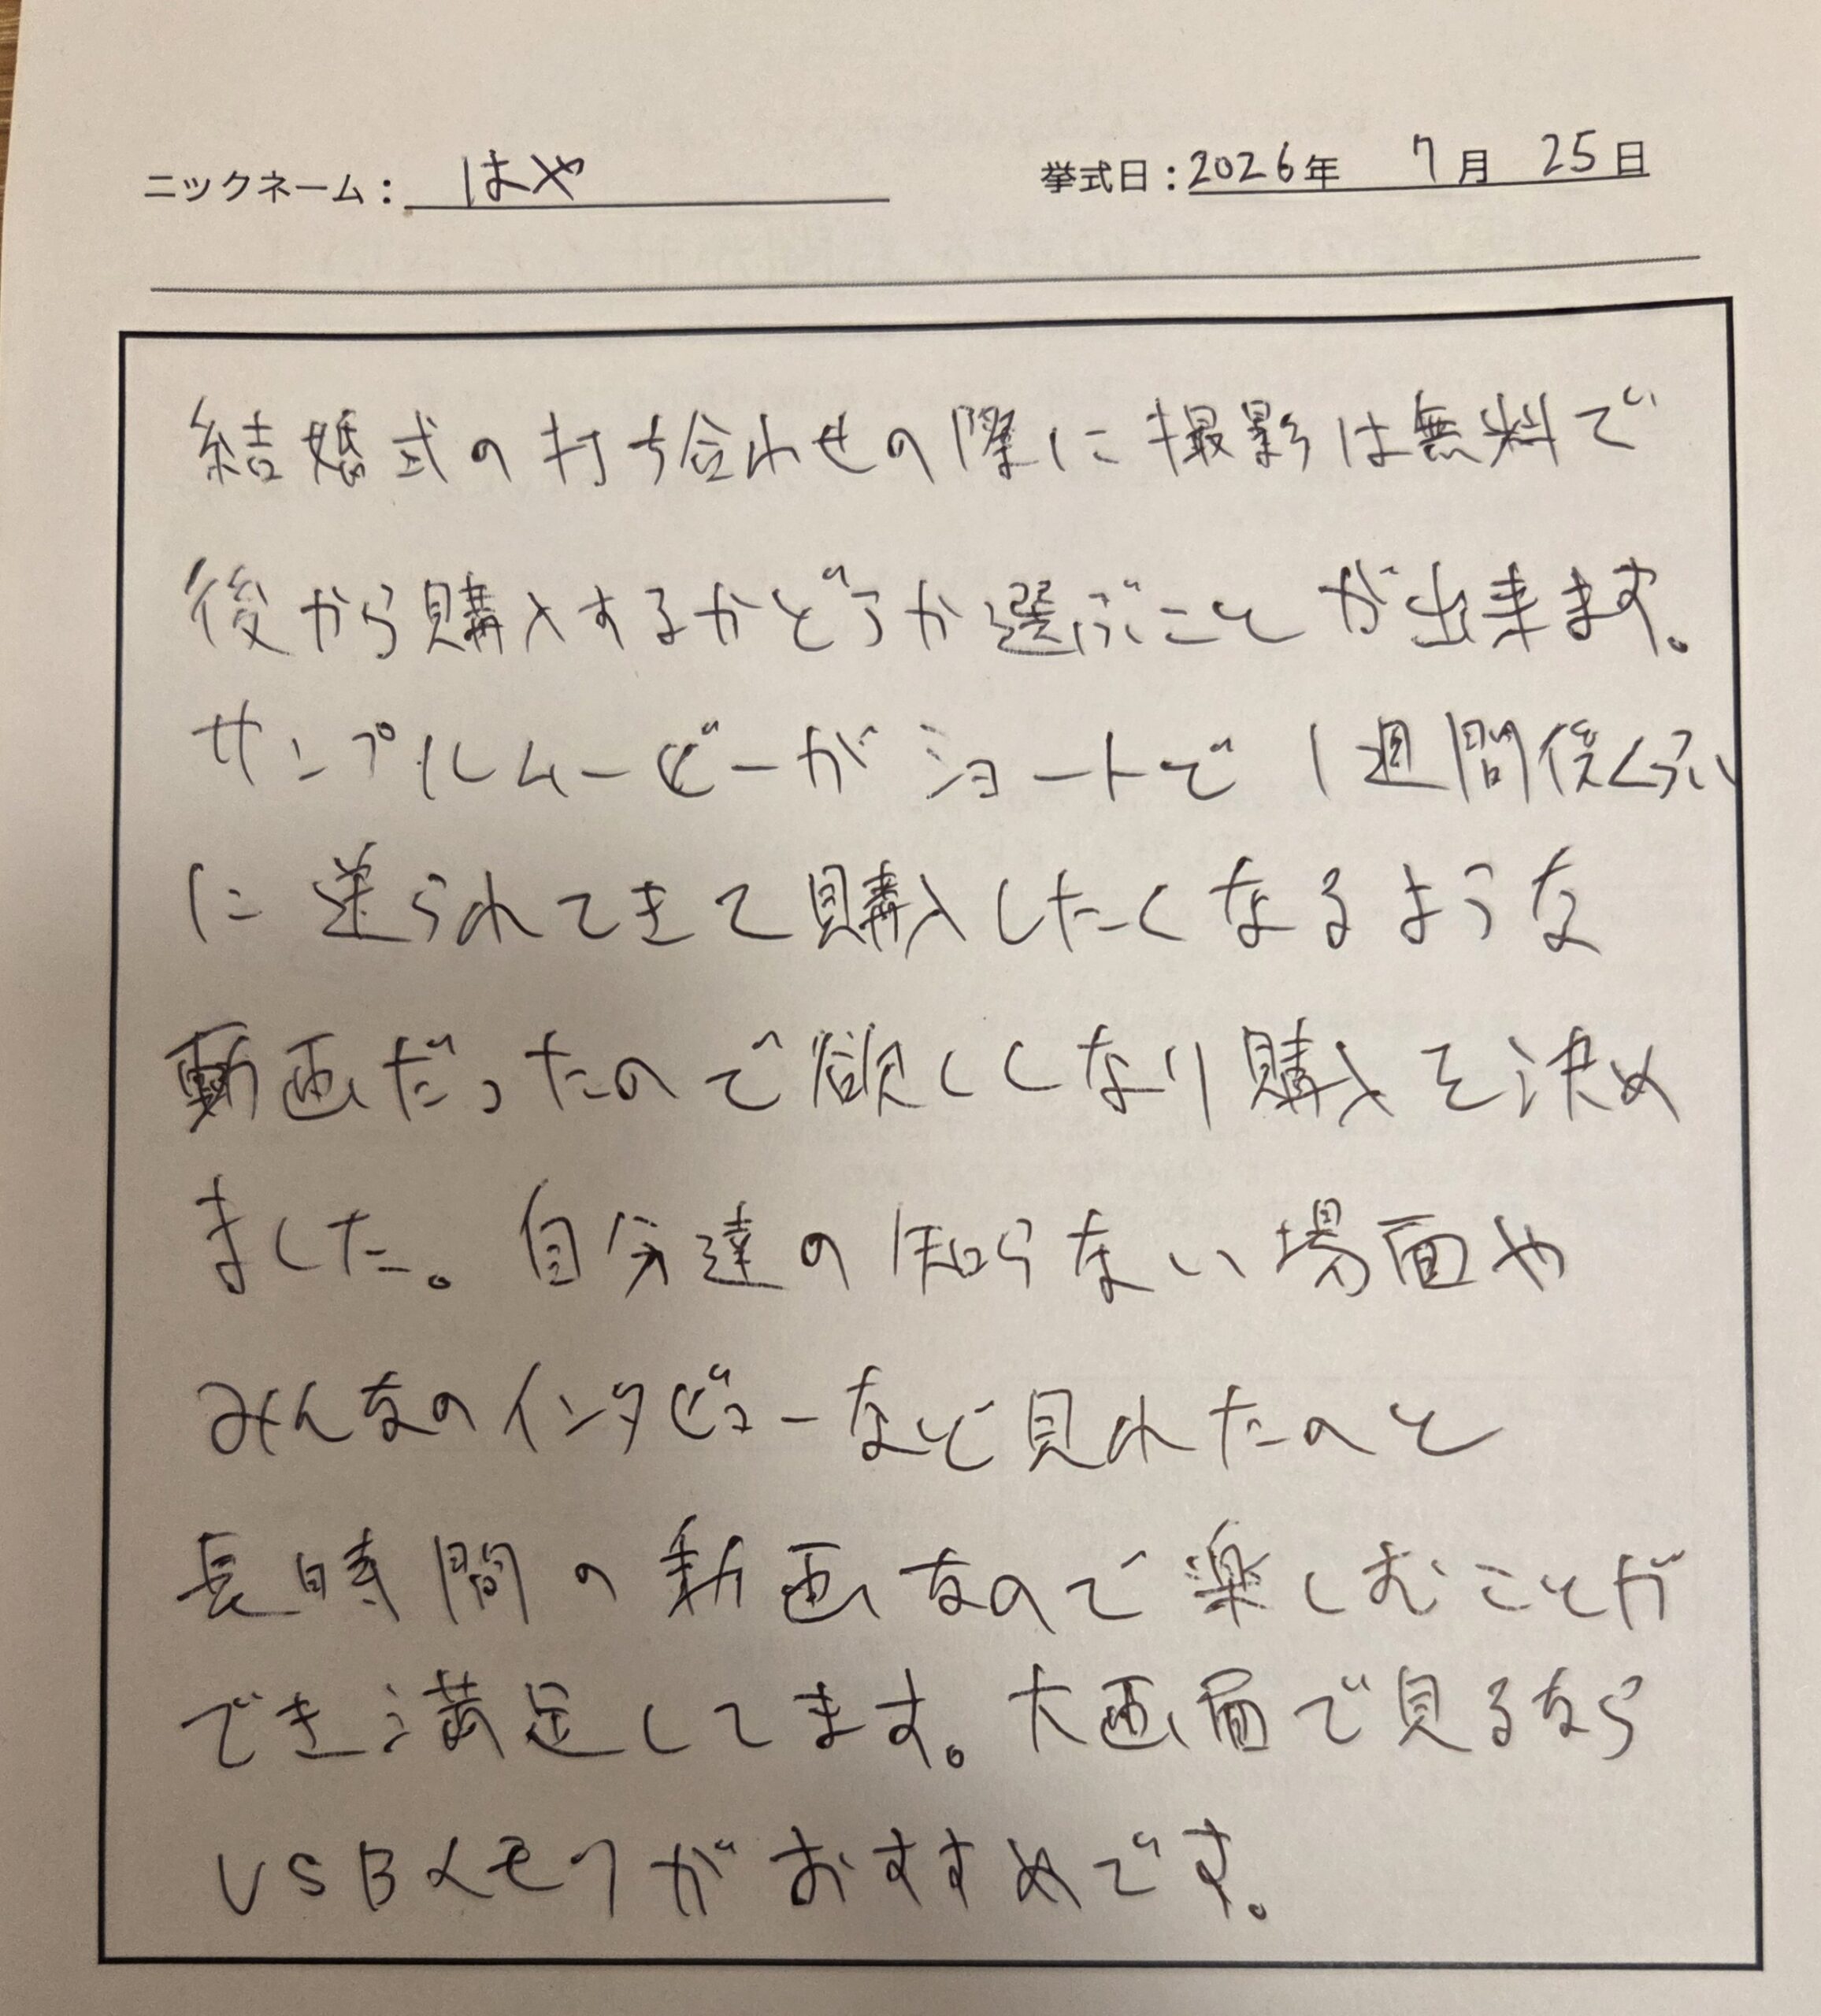 ニックネーム： はや
挙式日：2026年 7月 25日
結婚式の打ち合わせの際に撮影は無料で
後から購入するかどうか選ぶことが出来ます。
サンプルムービーがショートで1週間後くらい
に送られてきて購入したくなるような
動画だったので欲しくなり購入を決め
ました。自分達の知らない場面や
みんなのインタビューなど見れたのと
長時間の動画なので楽しむことが
でき満足してます。大画面で見るなら
USBメモリがおすすめです。